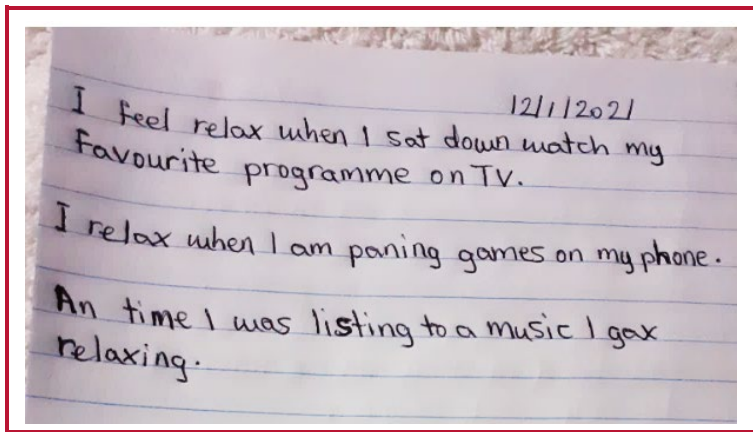 12/1/2021
I feel relax when I sat down watch my
favourite programme on TV.
I relax when I am paning games on my phone.
An time I was listing to a music I gax
relaxing.